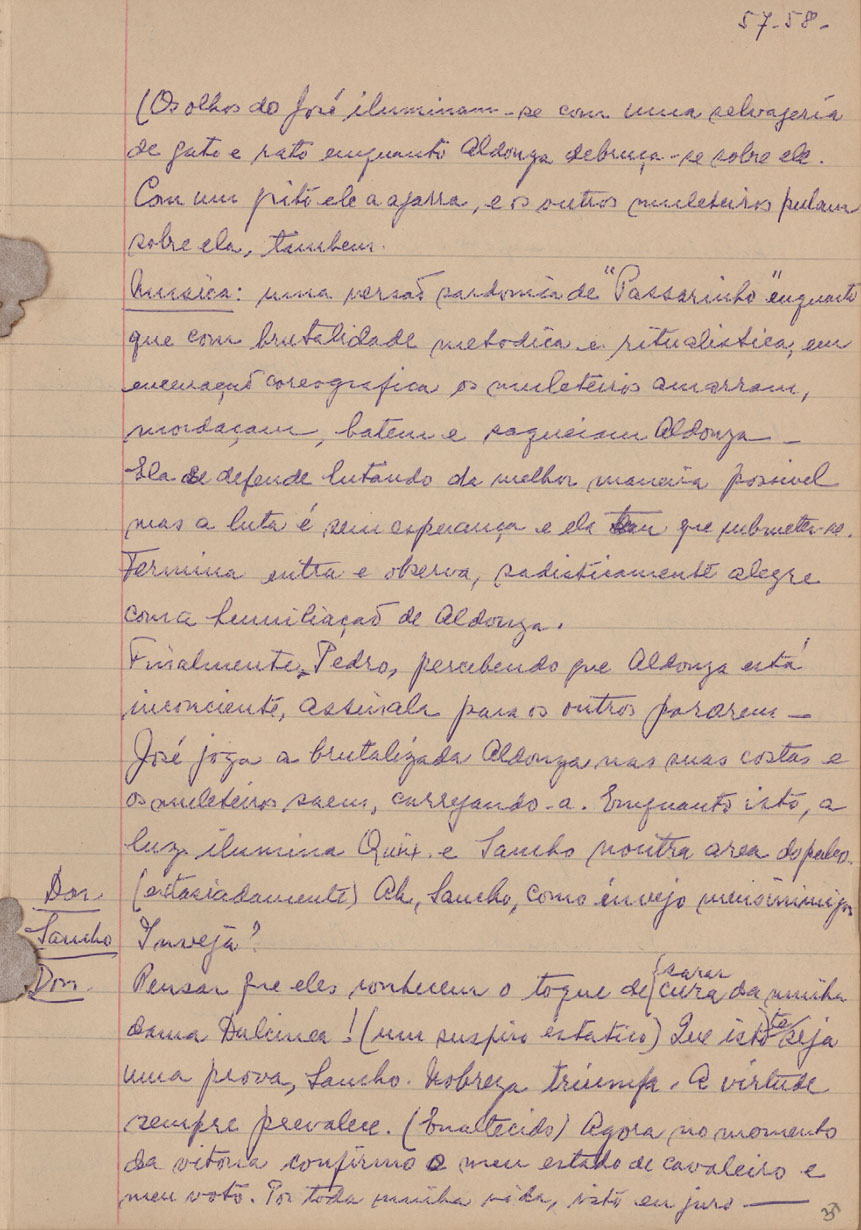 57-58-
(Os olhos do José iluminam-se com uma selvageria
de gato e rato enquanto Aldonza debruça-se sobre ele.
Com um grito ele a agarra, e os outros muleteiros pulam
sobre ela, tambem.
Musica: uma versão de "Passarinho" enquanto
que com brutalidade metodica e ritualistica, em
encenação coreografica os muleteiros amarram,
mordaçam, batem e saqueiam Aldonza —
Ela se defende lutando da melhor maneira possivel
mas a luta é sem esperança e ela tem que submeter-se.
Fermina entra e observa, sadisticamente alegre
com a humiliação de Aldonza.
Finalmente, Pedro, percebendo que Aldonza está
inconciente, assinala para os outros pararem —
José joga a brutalizada Aldonza nas suas costas e
os muleteiros saem, carregando-a. Enquanto isto, a
luz ilumina Quix. e Sancho noutra area do palco.
Don (extasiadamente) Ah, Sancho, como invejo meus inimigos
Sancho Inveja?
sarar
Don. Pensar que eles conhecem o toque de {cura da minha
dama Dulcinea! (um suspiro estatico) Que isto seja
uma prova, Sancho. Nobreza triumfa. A virtude
sempre prevalece. (Enaltecido) Agora no momento
da vitoria confirmo o meu estado de cavaleiro e
meu voto. Por toda minha vida, isto eu juro —